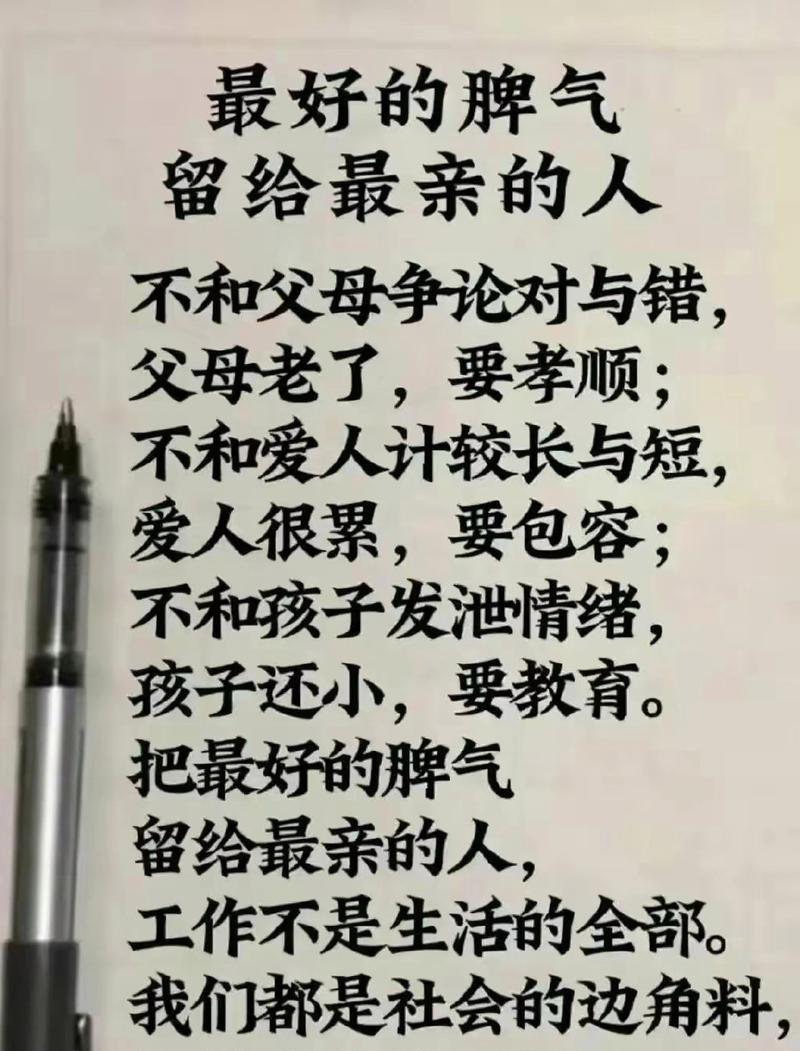 最好的脾气
留给最亲的人
不和父母争论对与错，
父母老了，要孝顺；
不和爱人计较长与短，
爱人很累，要包容；
不和孩子发泄情绪，
孩子还小，要教育。
把最好的脾气
留给最亲的人，
工作不是生活的全部。
我们都是社会的边角料，